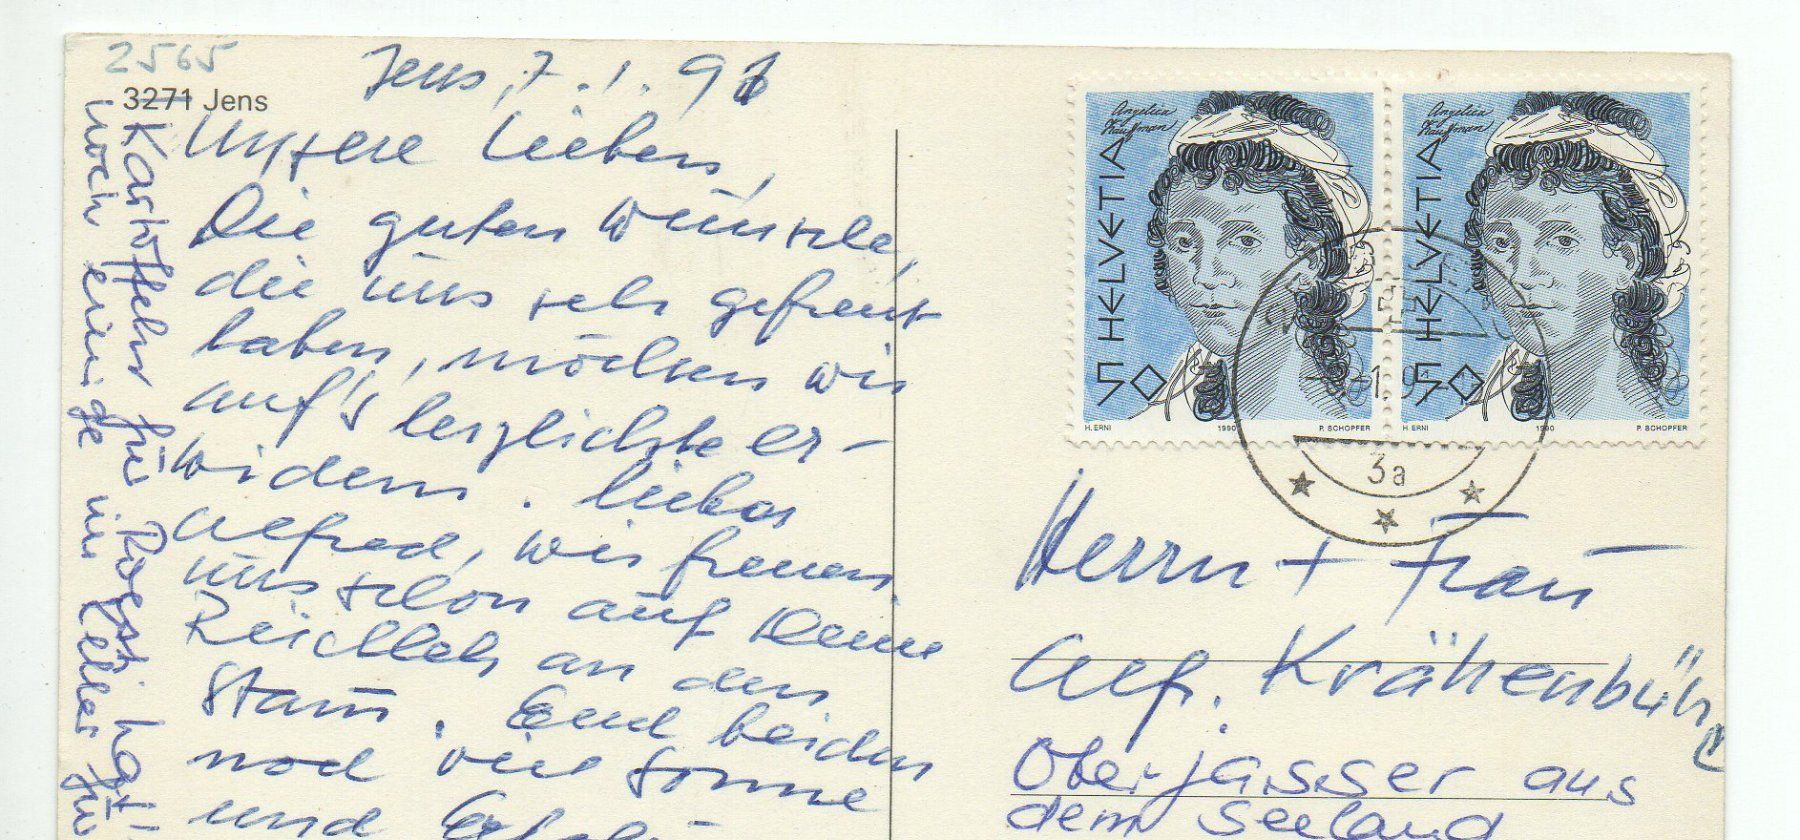 2565
3271 Jens
Jens, 7.1.91
Unsere Lieben,
Die guten Wünsche,
die uns sehr gefreut
haben, möchten wir
auf's herzlichste er-
widern. Lieber
Alfred, wir freuen
uns schon auf Deine
Rückkehr an den
Stamm. Euch beiden
noch viel Sonne
und
Kartoffeln für Roesti hat
noch einige im Keller für
Angelica
Kauffman
HELVETIA
50
H. ERNI 1990 P. SCHOPFER
Angelica
Kauffman
HELVETIA
50
H. ERNI 1990 P. SCHOPFER
3a
Herrn + Frau
Alf. Krähenbühl
Oberjasser aus
dem Seeland